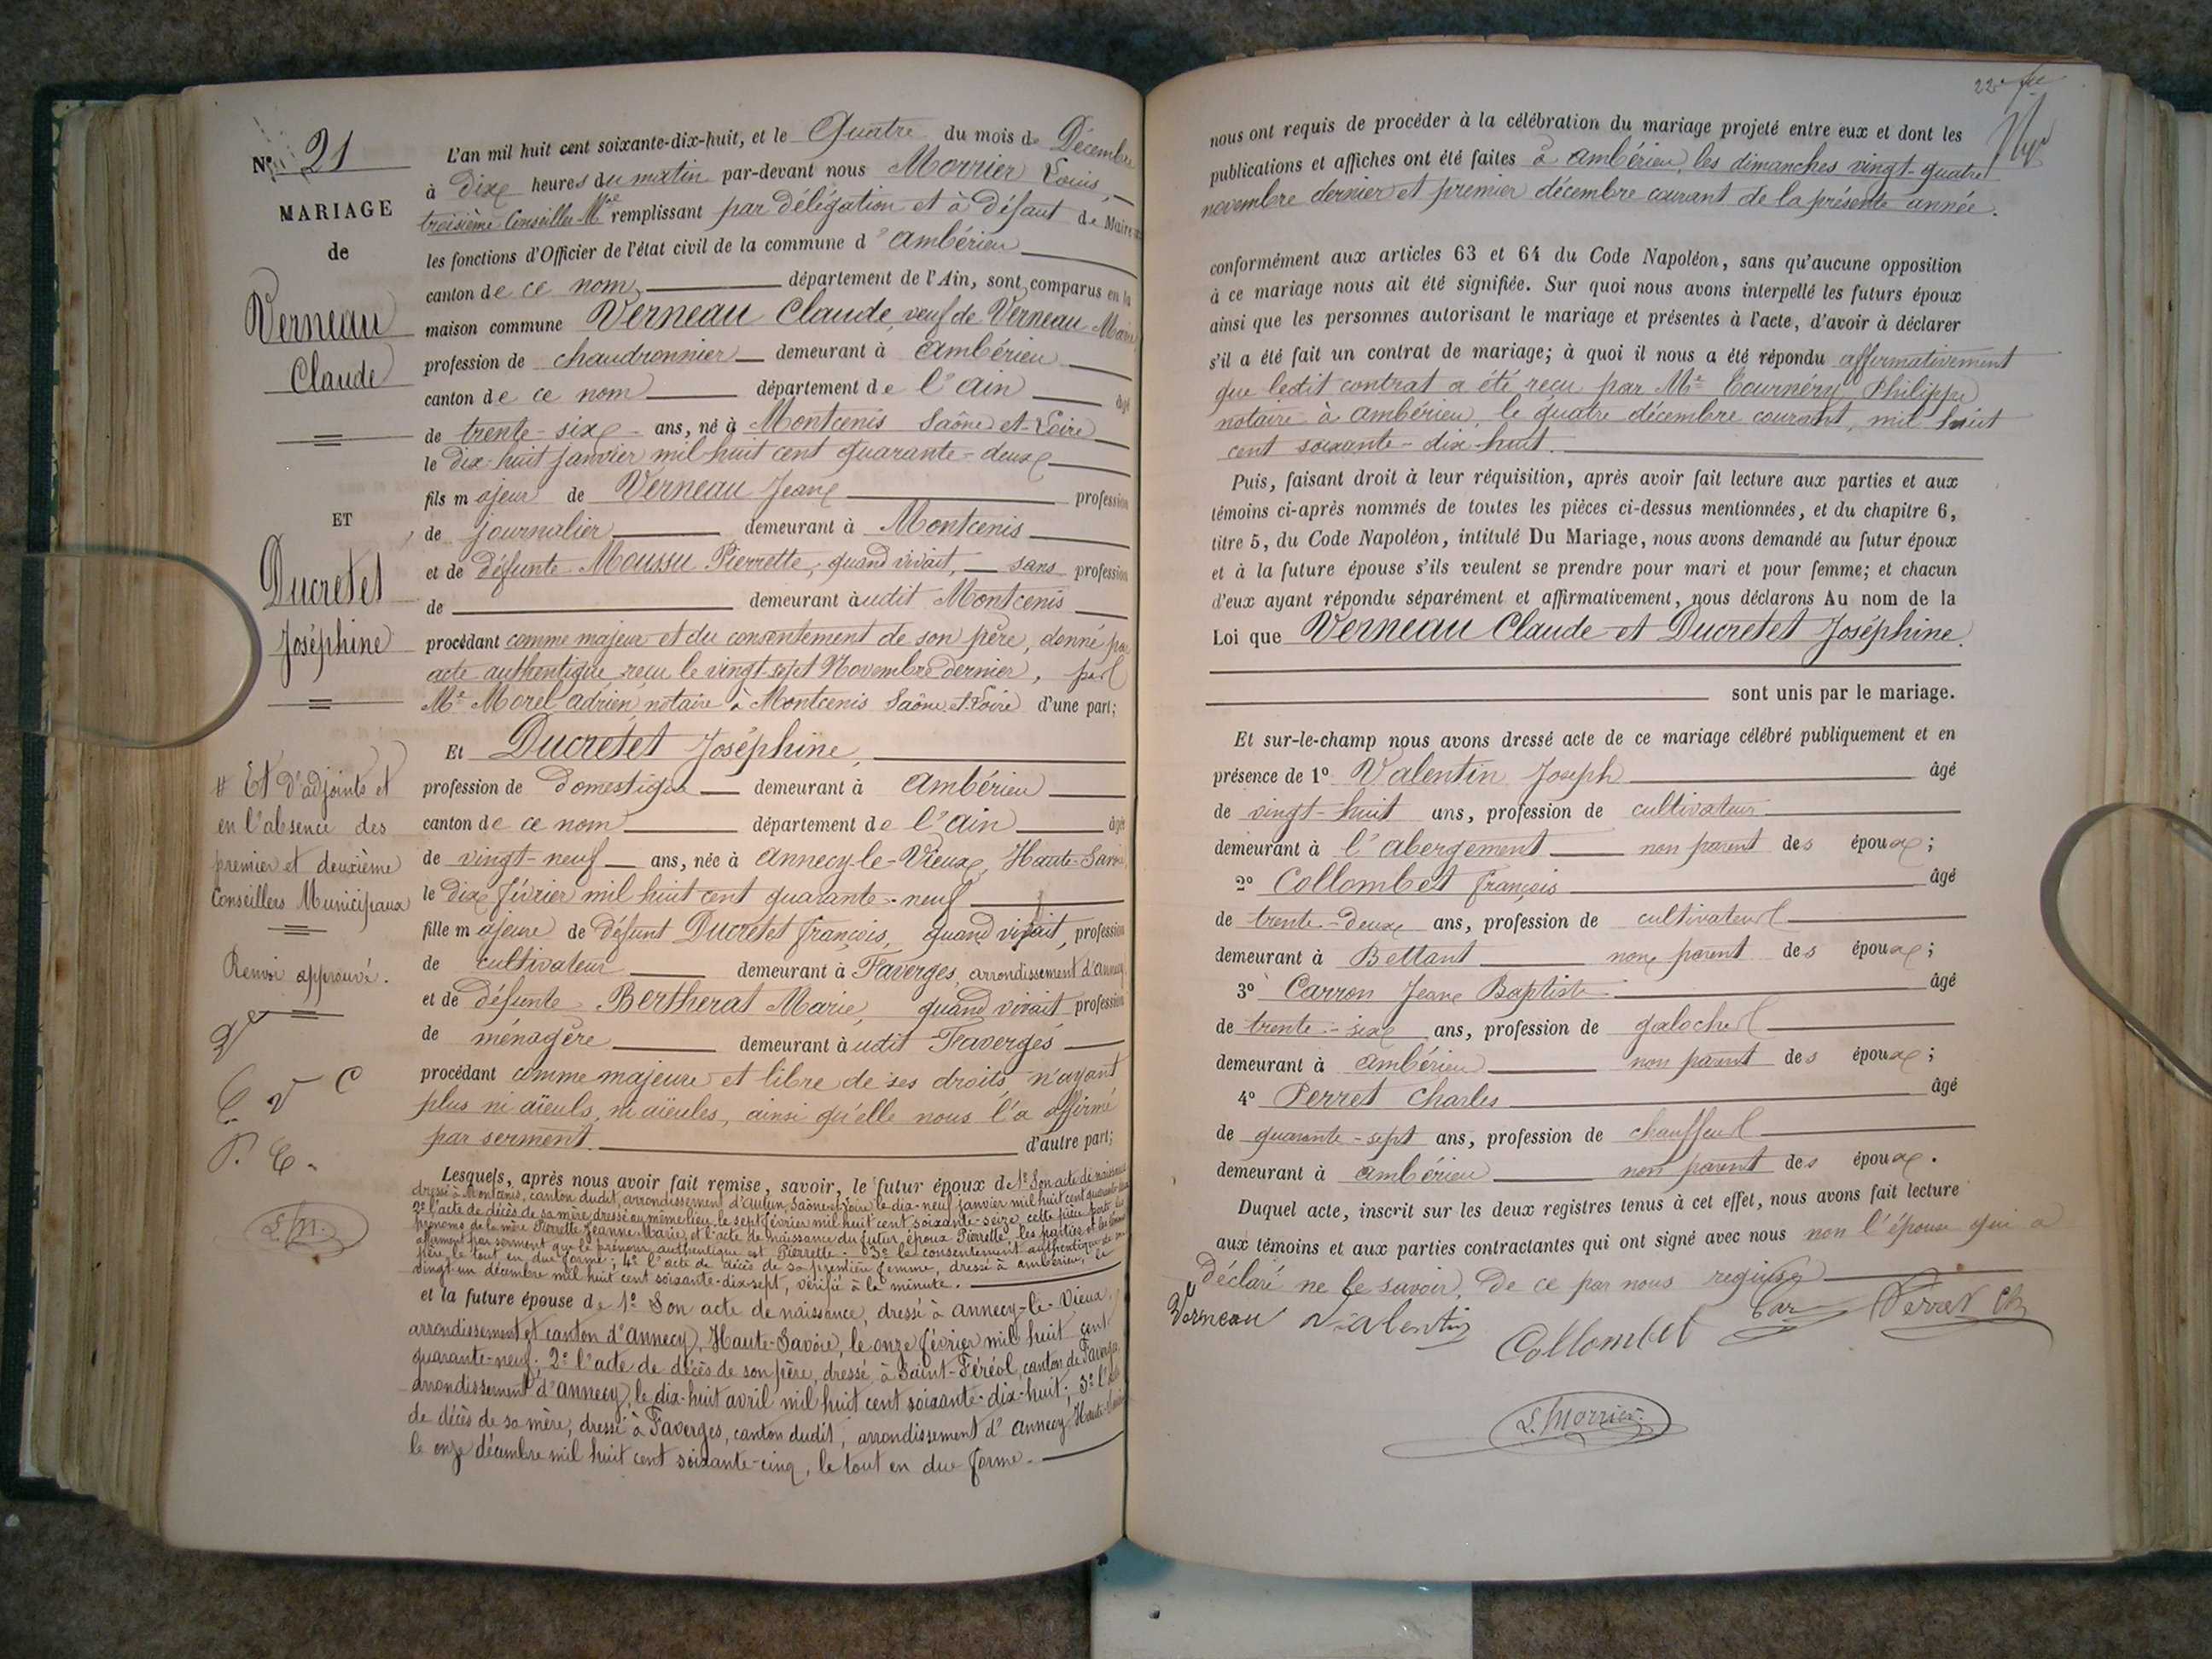 N° 21
MARIAGE
de
Verneau
Claude
ET
Ducretet
Joséphine
# Et d'adjoints et
en l'absence des
premier et deuxième
Conseillers Municipaux
Renvoi approuvé.
L. M.
L'an mil huit cent soixante-dix-huit, et le Quatre du mois de Décembre
à dix heures du matin par-devant nous Morrier Louis,
troisième Conseiller Mal remplissant par délégation et à défaut de Maire #
les fonctions d'Officier de l'état civil de la commune d'Ambérieu
canton de ce nom, département de l'Ain, sont comparus en la
maison commune Verneau Claude, veuf de Verneau Marie
profession de chaudronnier demeurant à Ambérieu
canton de ce nom département de l'Ain âgé
de trente-six ans, né à Montcenis Saône-et-Loire
le dix-huit janvier mil huit cent quarante-deux
fils majeur de Verneau Jean profession
de journalier demeurant à Montcenis
et de défunte Moussu Pierrette, quand vivait, sans profession
de demeurant audit Montcenis
procédant comme majeur et du consentement de son père, donné par
acte authentique reçu le vingt-sept Novembre dernier, par
Me Morel Adrien, notaire à Montcenis Saône-et-Loire d'une part;
Et Ducretet Joséphine,
profession de domestique demeurant à Ambérieu
canton de ce nom département de l'Ain âgée
de vingt-neuf ans, née à Annecy-le-Vieux, Haute-Savoie
le dix février mil huit cent quarante-neuf
fille majeure de défunt Ducretet François, quand vivait, profession
de cultivateur demeurant à Faverges, arrondissement d'Annecy
et de défunte Bertherat Marie, quand vivait profession
de ménagère demeurant audit Faverges
procédant comme majeure et libre de ses droits n'ayant
plus ni aïeuls, ni aïeules, ainsi qu'elle nous l'a affirmé
par serment. d'autre part;
Lesquels, après nous avoir fait remise, savoir, le futur époux de 1° Son acte de naissance
dressé à Montcenis, canton dudit, arrondissement d'Autun, Saône-et-Loire le dix-neuf janvier mil huit cent quarante-deux
2° l'acte de décès de sa mère dressé au même lieu le sept février mil huit cent soixante-seize, cette pièce porte les
prénoms de la mère Pierrette Jeanne Marie, et l'acte de naissance du futur époux Pierrette, les parties et les témoins
affirment par serment que le prénom authentique est Pierrette. 3° le consentement authentique de son
père le tout en due forme; 4° l'acte de décès de sa première femme, dressé à Ambérieu, le
vingt-un décembre mil huit cent soixante-dix-sept, vérifié à la minute.
et la future épouse de 1° Son acte de naissance, dressé à Annecy-le-Vieux
arrondissement et canton d'Annecy, Haute-Savoie, le onze février mil huit cent
quarante-neuf; 2° l'acte de décès de son père, dressé à Saint-Féréol, canton de Faverges
arrondissement d'Annecy, le dix-huit avril mil huit cent soixante-dix-huit; 3° l'acte
de décès de sa mère, dressé à Faverges, canton dudit, arrondissement d'Annecy Haute-Savoie
le onze décembre mil huit cent soixante-cinq, le tout en due forme.
nous ont requis de procéder à la célébration du mariage projeté entre eux et dont les
publications et affiches ont été faites à Ambérieu, les dimanches vingt-quatre
novembre dernier et premier décembre courant de la présente année.
conformément aux articles 63 et 64 du Code Napoléon, sans qu'aucune opposition
à ce mariage nous ait été signifiée. Sur quoi nous avons interpellé les futurs époux
ainsi que les personnes autorisant le mariage et présentes à l'acte, d'avoir à déclarer
s'il a été fait un contrat de mariage; à quoi il nous a été répondu affirmativement
que ledit contrat a été reçu par Me Tournéry Philippe
notaire à Ambérieu, le quatre décembre courant, mil huit
cent soixante-dix-huit.
Puis, faisant droit à leur réquisition, après avoir fait lecture aux parties et aux
témoins ci-après nommés de toutes les pièces ci-dessus mentionnées, et du chapitre 6,
titre 5, du Code Napoléon, intitulé Du Mariage, nous avons demandé au futur époux
et à la future épouse s'ils veulent se prendre pour mari et pour femme; et chacun
d'eux ayant répondu séparément et affirmativement, nous déclarons Au nom de la
Loi que Verneau Claude et Ducretet Joséphine.
sont unis par le mariage.
Et sur-le-champ nous avons dressé acte de ce mariage célébré publiquement et en
présence de 1° Valentin Joseph âgé
de vingt-huit ans, profession de cultivateur
demeurant à l'abergement non parent des époux;
2° Collombet François âgé
de trente-deux ans, profession de cultivateur
demeurant à Bettant non parent des époux;
3° Carron Jean Baptiste âgé
de trente-six ans, profession de galocher
demeurant à Ambérieu non parent des époux;
4° Perret Charles âgé
de quarante-sept ans, profession de chauffeur
demeurant à Ambérieu non parent des époux.
Duquel acte, inscrit sur les deux registres tenus à cet effet, nous avons fait lecture
aux témoins et aux parties contractantes qui ont signé avec nous non l'épouse qui a
déclaré ne le savoir, de ce par nous requise
Verneau Valentin Collombet Perret Ch
L. Morrier